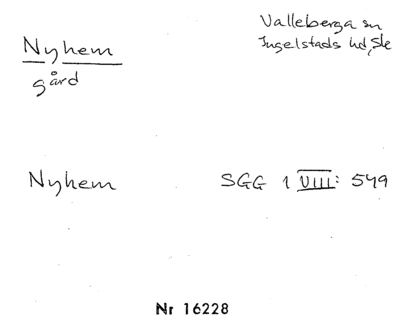 Nyhem
gård
Valleberga sn
Ingelstads hd, Sk
Nyhem SGG 1 VIII: 549
Nr 16228